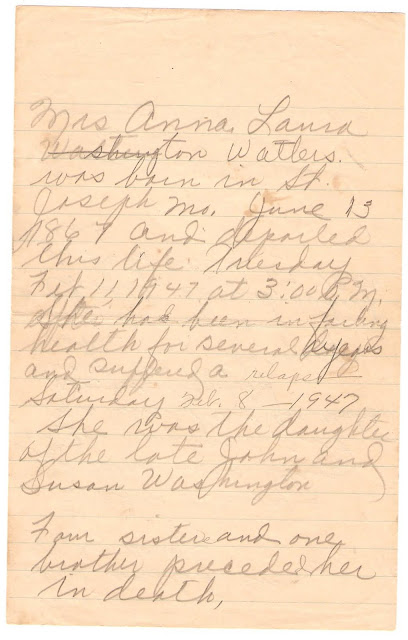 Mrs Anna Laura
Washington Watlers.
was born in St.
Joseph Mo. June 13
1867 and departed
this life Tuesday
Feb 11, 1947 at 3:00 P.M.
She has been in failing
health for several years
and suffered a relapse
Saturday Feb. 8 — 1947
She was the daughter
of the late John and
Susan Washington
Four sisters and one
brother preceded her
in death,